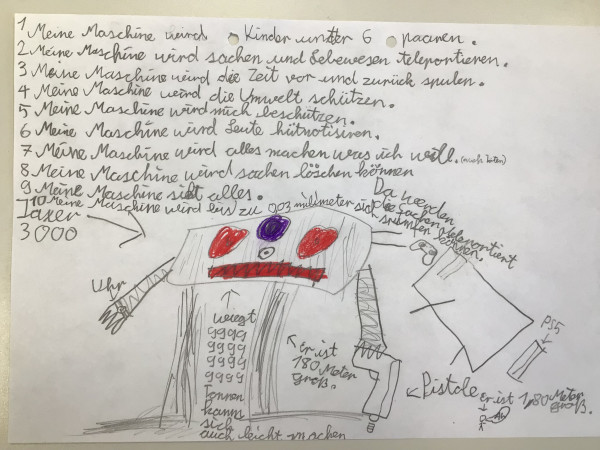 1 Meine Maschine wird Kinder unter 6 paaren.
2 Meine Maschine wird sachen und Lebewesen teleportieren.
3 Meine Maschine wird die Zeit vor und zurück spulen.
4 Meine Maschine wird die Umwelt schützen.
5 Meine Maschine wird mich beschützen.
6 Meine Maschine wird Leute hütnotisiren.
7 Meine Maschine wird alles machen was ich will. (auch töten)
8 Meine Maschine wird sachen löschen können
9 Meine Maschine siht alles.
10 Meine Maschine wird bis zu 003 milimeter sich
Da werden
die sachen teleportiert
können.
3000
Uhr
wiegt
9999
9999
9999
9999
Tonnen
kanns
sich
auch leicht machen
Er ist
180 Meter
groß.
PS5
Pistole
Er ist 1,80 Meter
groß.